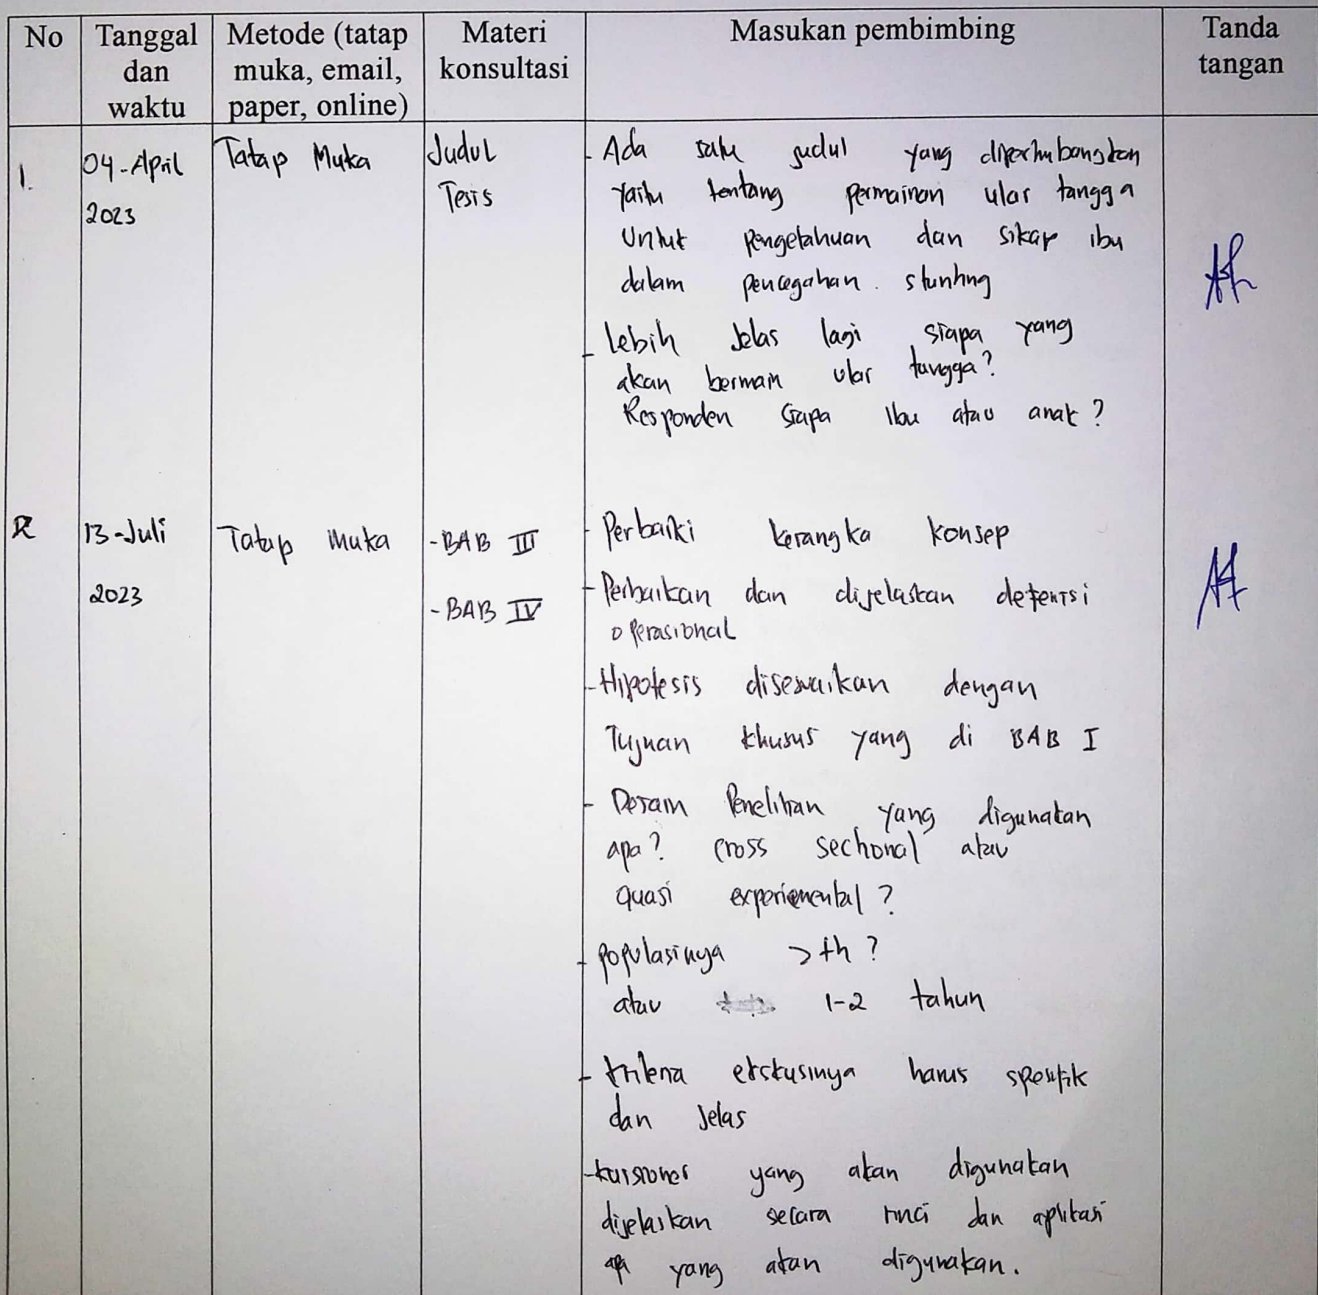 No Tanggal dan waktu Metode (tatap muka, email, paper, online) Materi konsultasi Masukan pembimbing Tanda tangan
1. 04-April 2023 Tatap Muka Judul Tesis
- Ada satu judul yang dipertimbangkan
yaitu tentang permainan ular tangga
Untuk Pengetahuan dan sikap ibu
dalam pencegahan. stunting
- Lebih Jelas lagi siapa yang
akan bermain ular tangga?
Responden siapa Ibu atau anak?
2 13-Juli 2023 Tatap Muka -BAB III -BAB IV
- Perbaiki kerangka konsep
- Perbaikan dan dijelaskan defenisi
operasional
- Hipotesis disesuaikan dengan
Tujuan khusus yang di BAB I
- Desain Penelitian yang digunakan
apa? cross sectional atau
quasi experiemental?
- Populasinya >th?
atau 1-2 tahun
- kriteria ekskusinya harus spesifik
dan Jelas
- kuisioner yang akan digunakan
dijelaskan secara rinci dan aplikasi
apa yang akan digunakan.